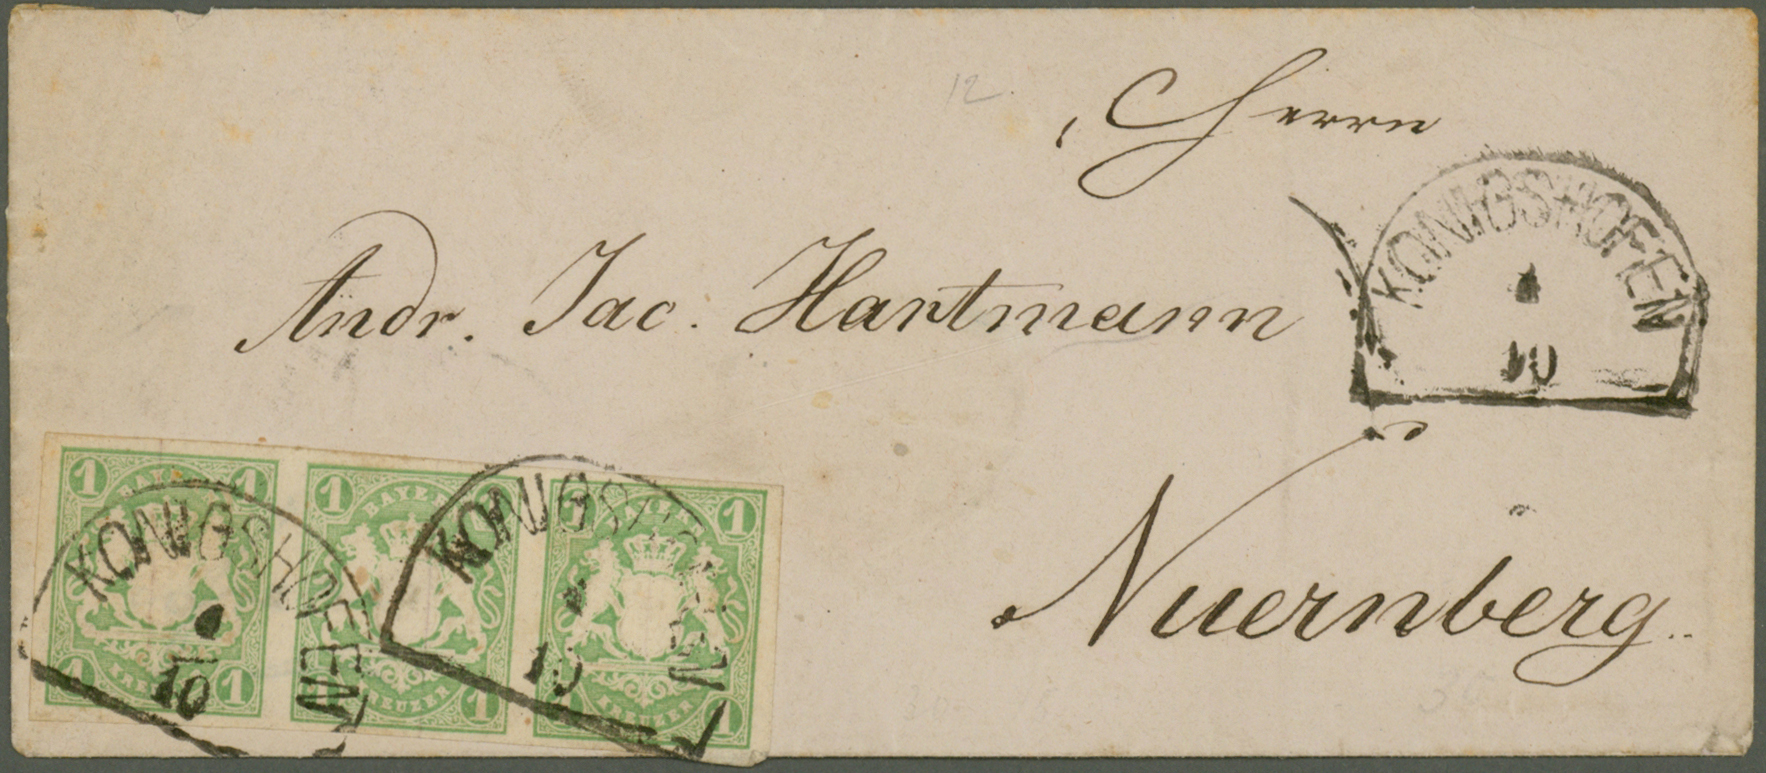 12.
Herrn
Andr. Jac. Hartmann
Nuernberg.
KÖNIGSHOFEN
4
10
1 BAYERN 1
1 KREUZER 1
1 BAYERN 1
1 KREUZER 1
1 BAYERN 1
1 KREUZER 1
KÖNIGSHOFEN
10
KÖNIGSHOFEN
4
10